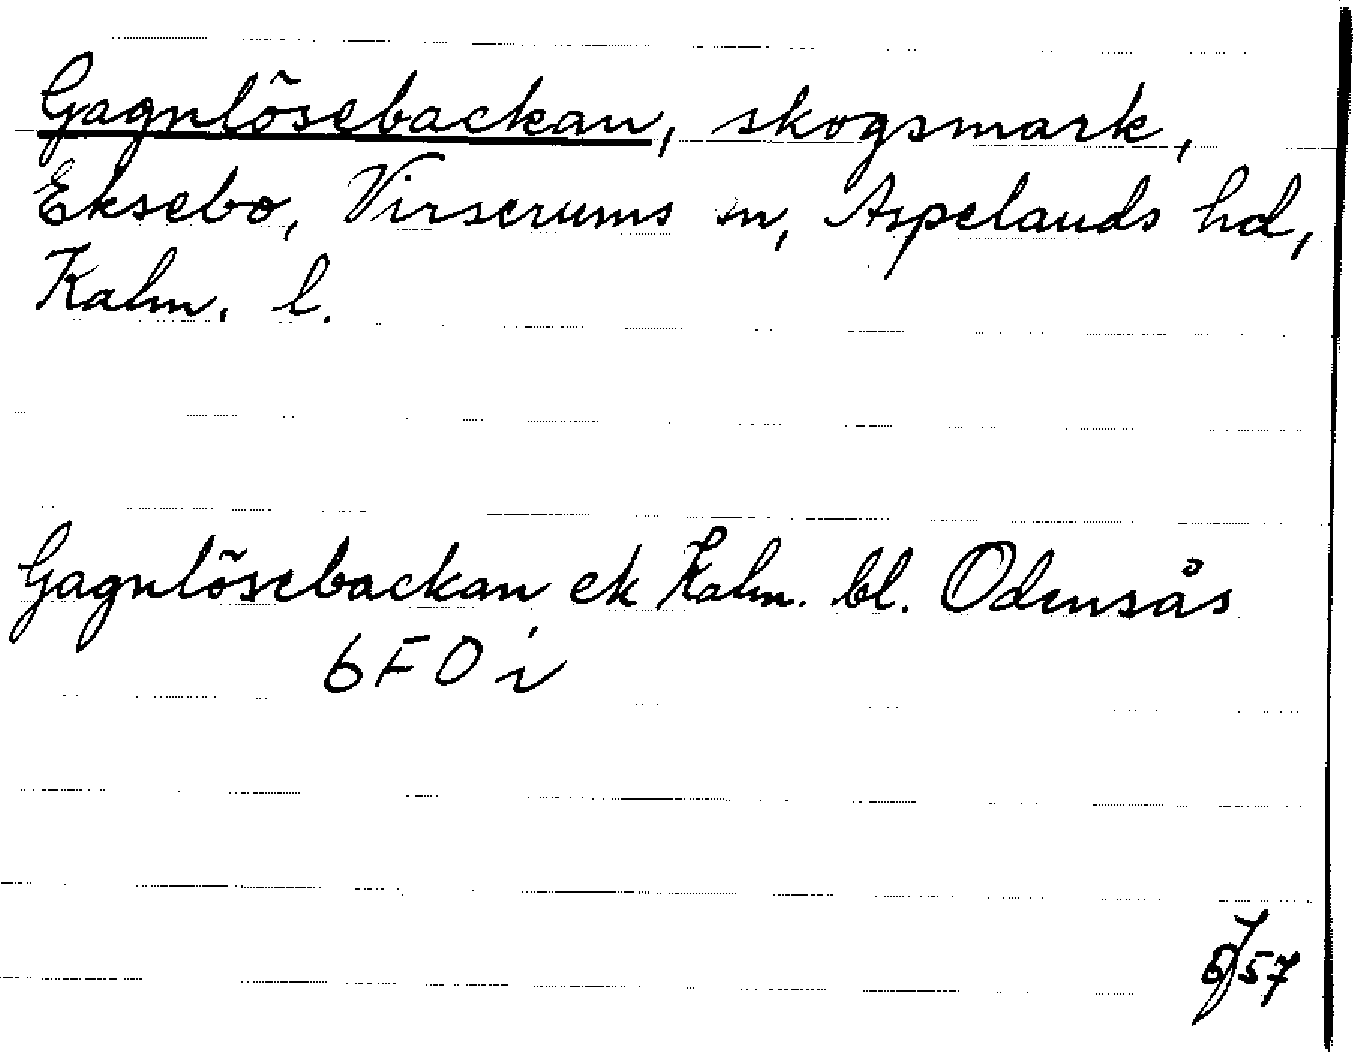 Gagnlösebackan, skogsmark,
Eksebo, Virserums sn, Aspelands hd,
Kalm. l.
Gagnlösebackan ek Kalm. bl. Odensås
6F0i
57